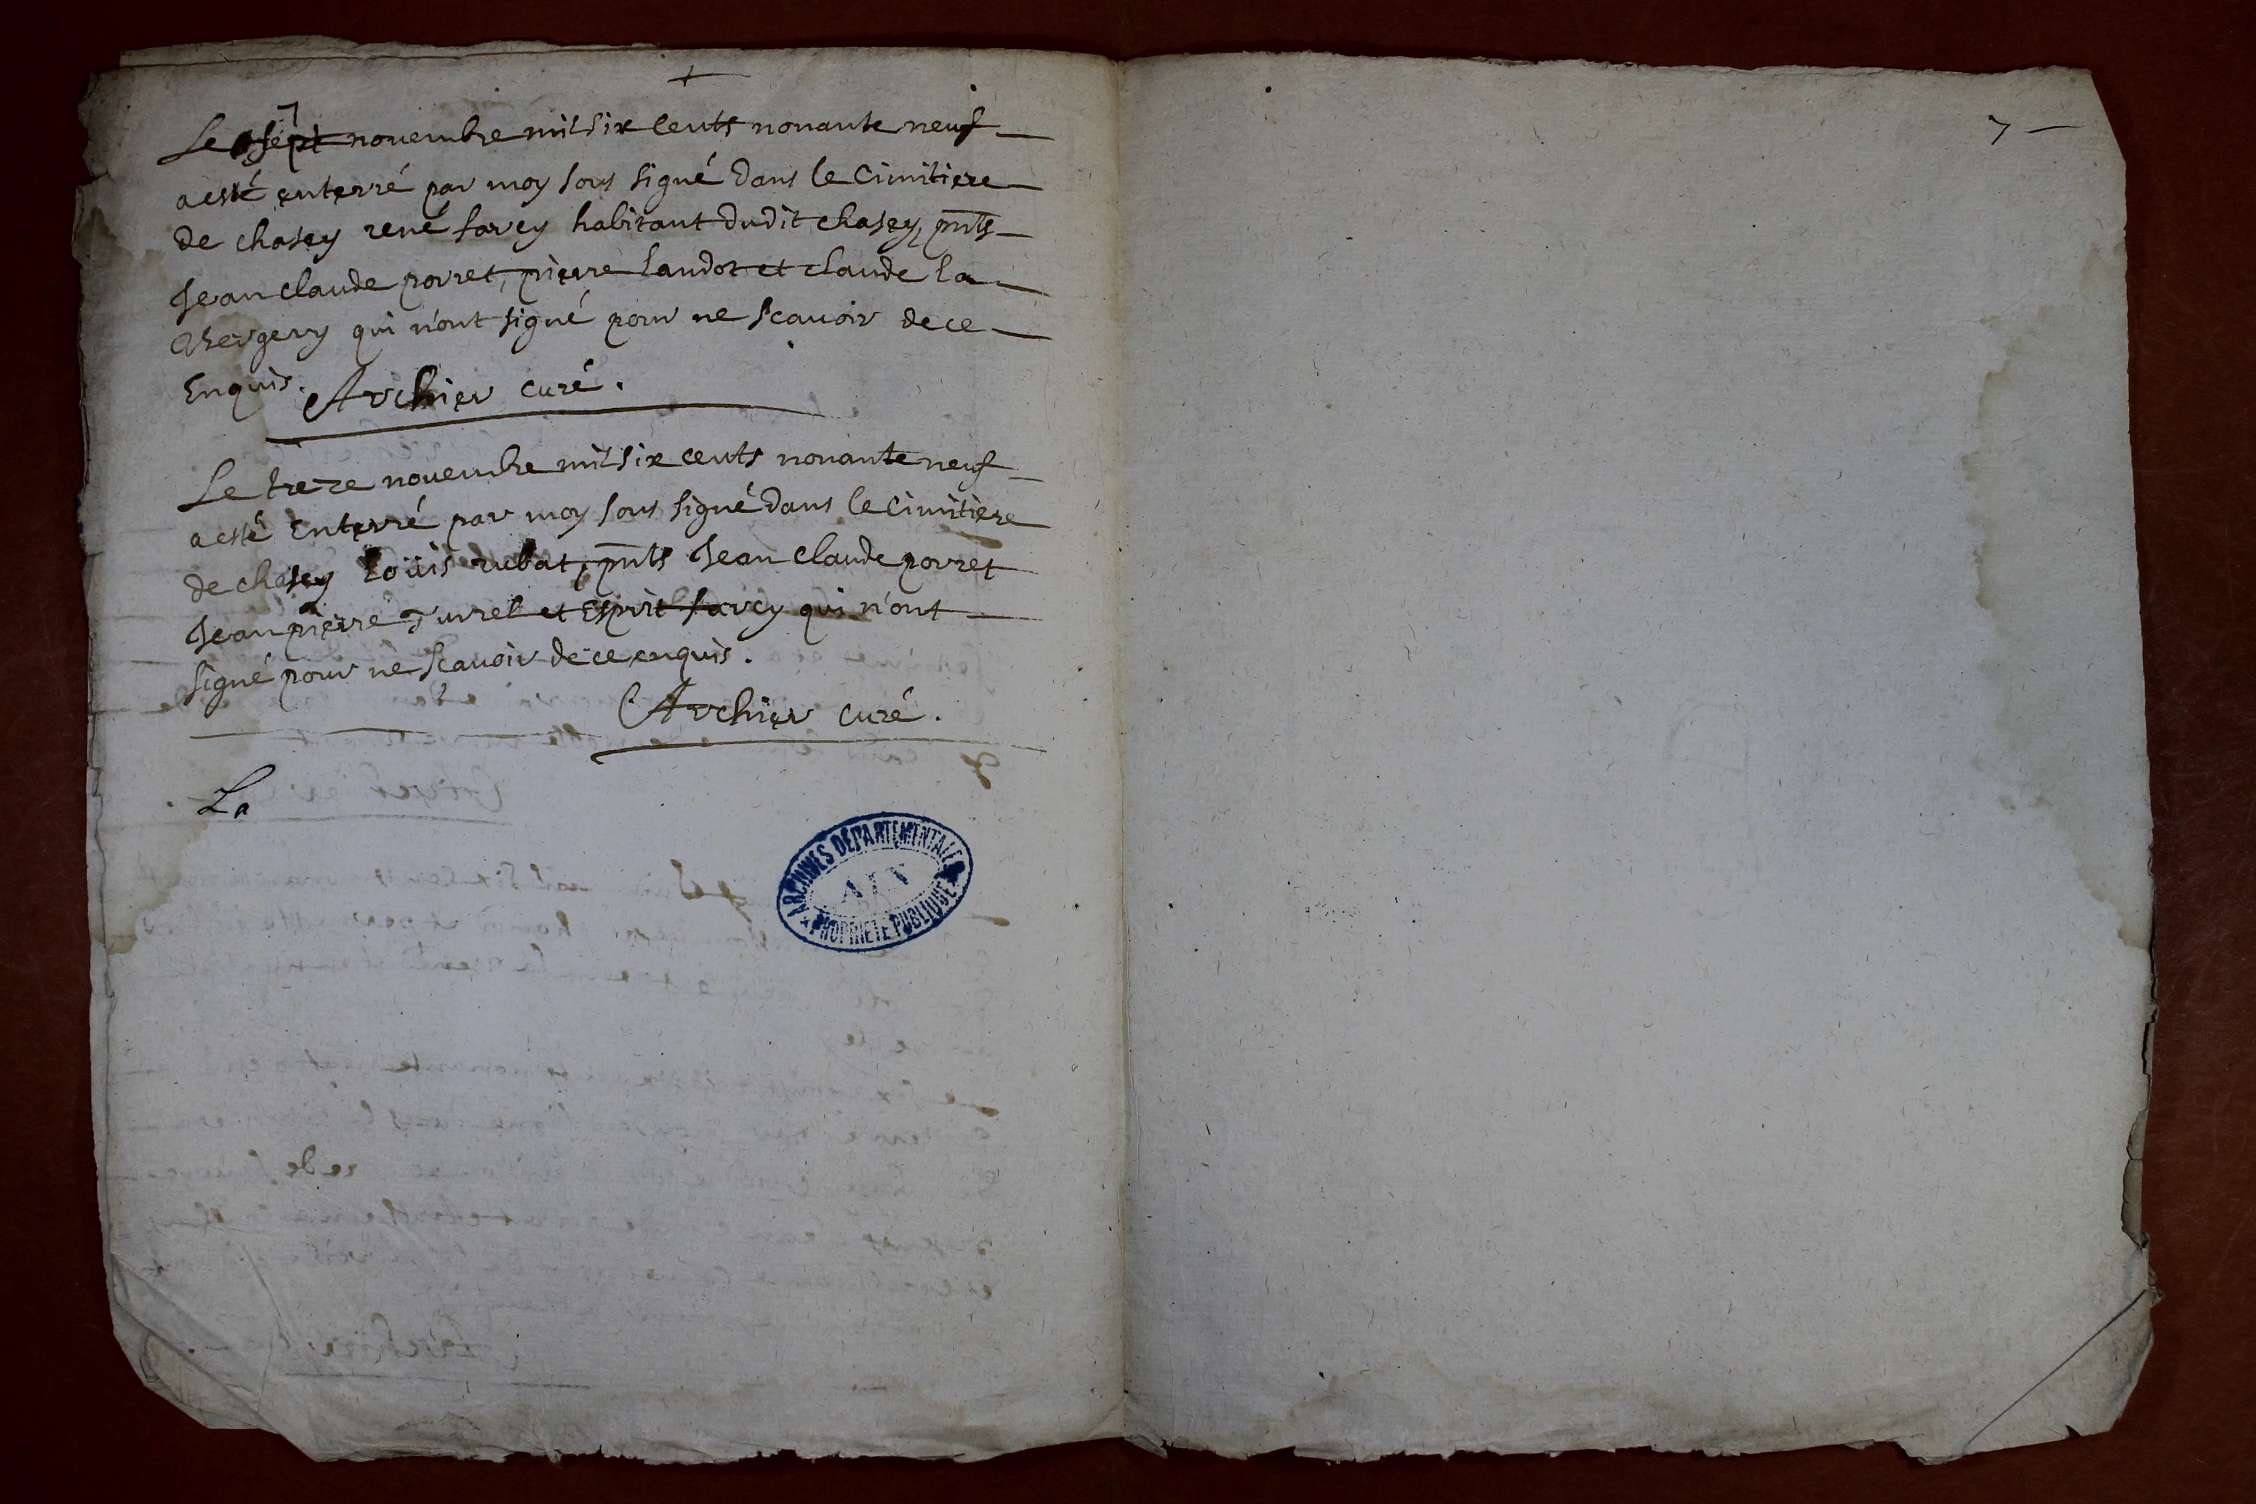 +
7
Le sept novembre mil six cents nonante neuf
a esté enterré par moy sous signé dans le Cimitiere
de chasey rené farcy habitant dudit chasey, pnts
Jean claude porret, pierre landot et claude la
Bergery qui n'ont signé pour ne scavoir de ce
Enquis. Archier curé.
Le treze novembre mil six cents nonante neuf
a esté Enterré par moy sous signé dans le Cimitiere
de chasey Loüis rubat, pnts Jean claude porret
Jean pierre Turrel et Esprit farcy qui n'ont
signé pour ne scavoir de ce enquis.
Archier curé.
La
ARCHIVES DÉPARTEMENTALES
AIN
PROPRIÉTÉ PUBLIQUE
7